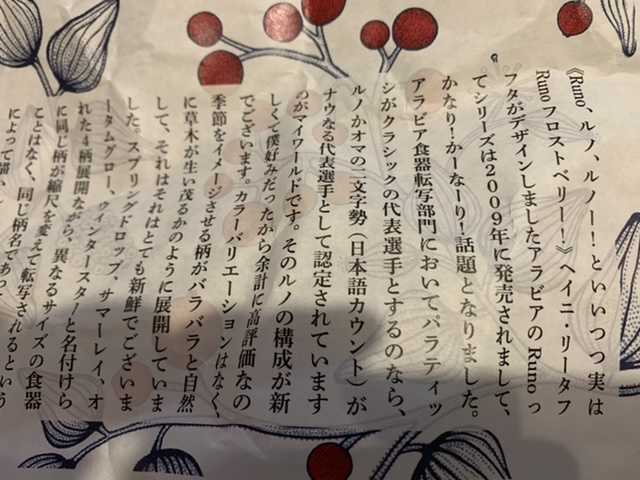 《Runo、ルノ、ルノー！といいつつ実は
Runoフロストベリー！》ヘイニ・リータフ
フタがデザインしましたアラビアのRunoっ
てシリーズは2009年に発売されまして、
かなり！かーなーり！話題となりました。
アラビア食器転写部門においてパラティッ
シがクラシックの代表選手とするのなら、
ルノかオマの二文字勢（日本語カウント）が
ナウなる代表選手として認定されています
のがマイワールドです。そのルノの構成が新
しくて僕好みだったから余計に高評価なの
でございます。カラーバリエーションはなく、
季節をイメージさせる柄がバラバラと自然
に草木が生い茂るかのように展開していま
して、それはそれはとても新鮮でございま
した。スプリングドロップ、サマーレイ、オ
ータムグロー、ウィンタースターと名付けら
れた4柄展開ながら、異なるサイズの食器
に同じ柄が縮尺を変えて転写されるという
ことはなく、同じ柄名であっ
によって